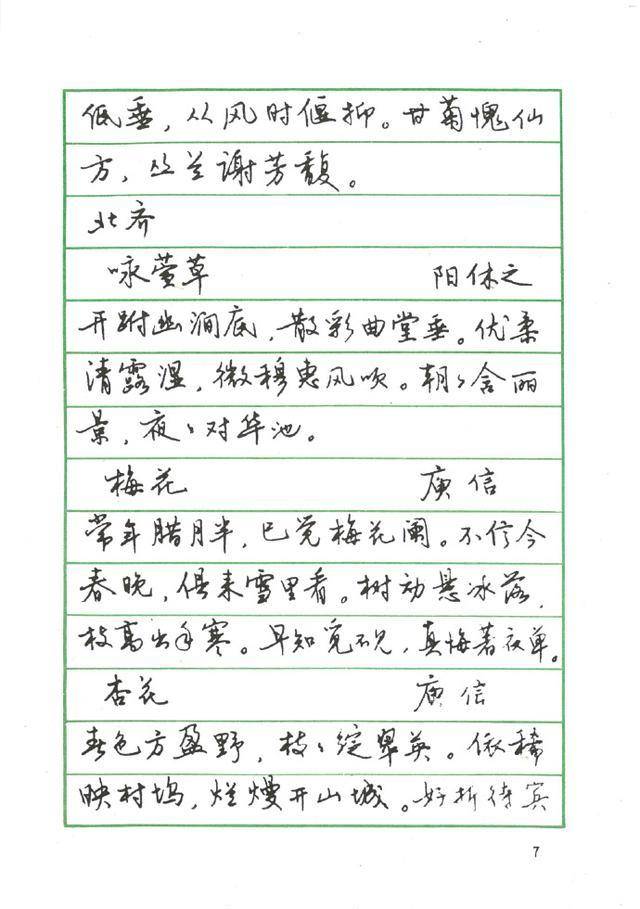 低垂，从风时偃抑。甘菊愧仙
方，丛兰谢芳馥。
北齐
咏萱草 阳休之
开跗幽涧底，散彩曲堂垂。优柔
清露湿，微穆惠风吹。朝〻含丽
景，夜〻对华池。
梅花 庾信
常年腊月半，已觉梅花阑。不信今
春晚，俱来雪里看。树动悬冰落，
枝高出手寒。早知觅不见，真悔著衣单。
杏花 庾信
春色方盈野，枝〻绽翠英。依稀
映村坞，烂熳开山城。好折待宾
7